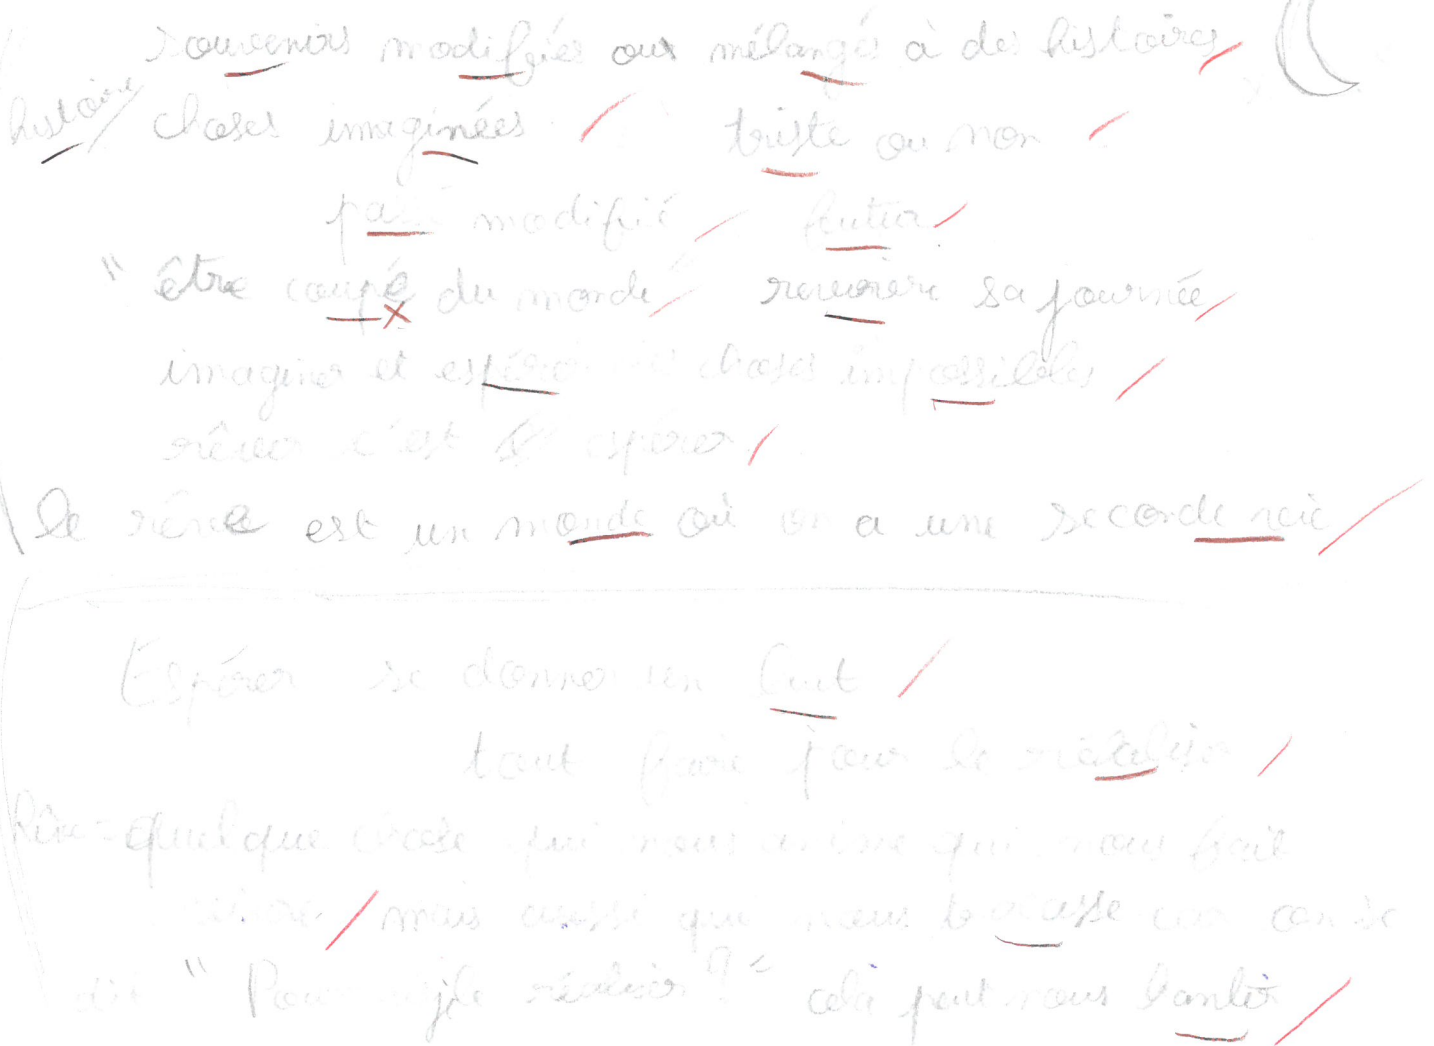 souvenirs modifiés ou mélangés à des histoires
histoire choses imaginées triste ou non
passé modifié futur
" être coupé du monde revivre sa journée
imaginer et espérer des choses impossibles
rêver c'est espérer
le rêve est un monde où on a une seconde vie
Espérer se donner un but
tout faire pour le réaliser
Rêve = quelque chose qui nous anime qui nous fait
vivre mais aussi qui nous car on se
dit " Pour le réaliser ? " cela peut nous hanter